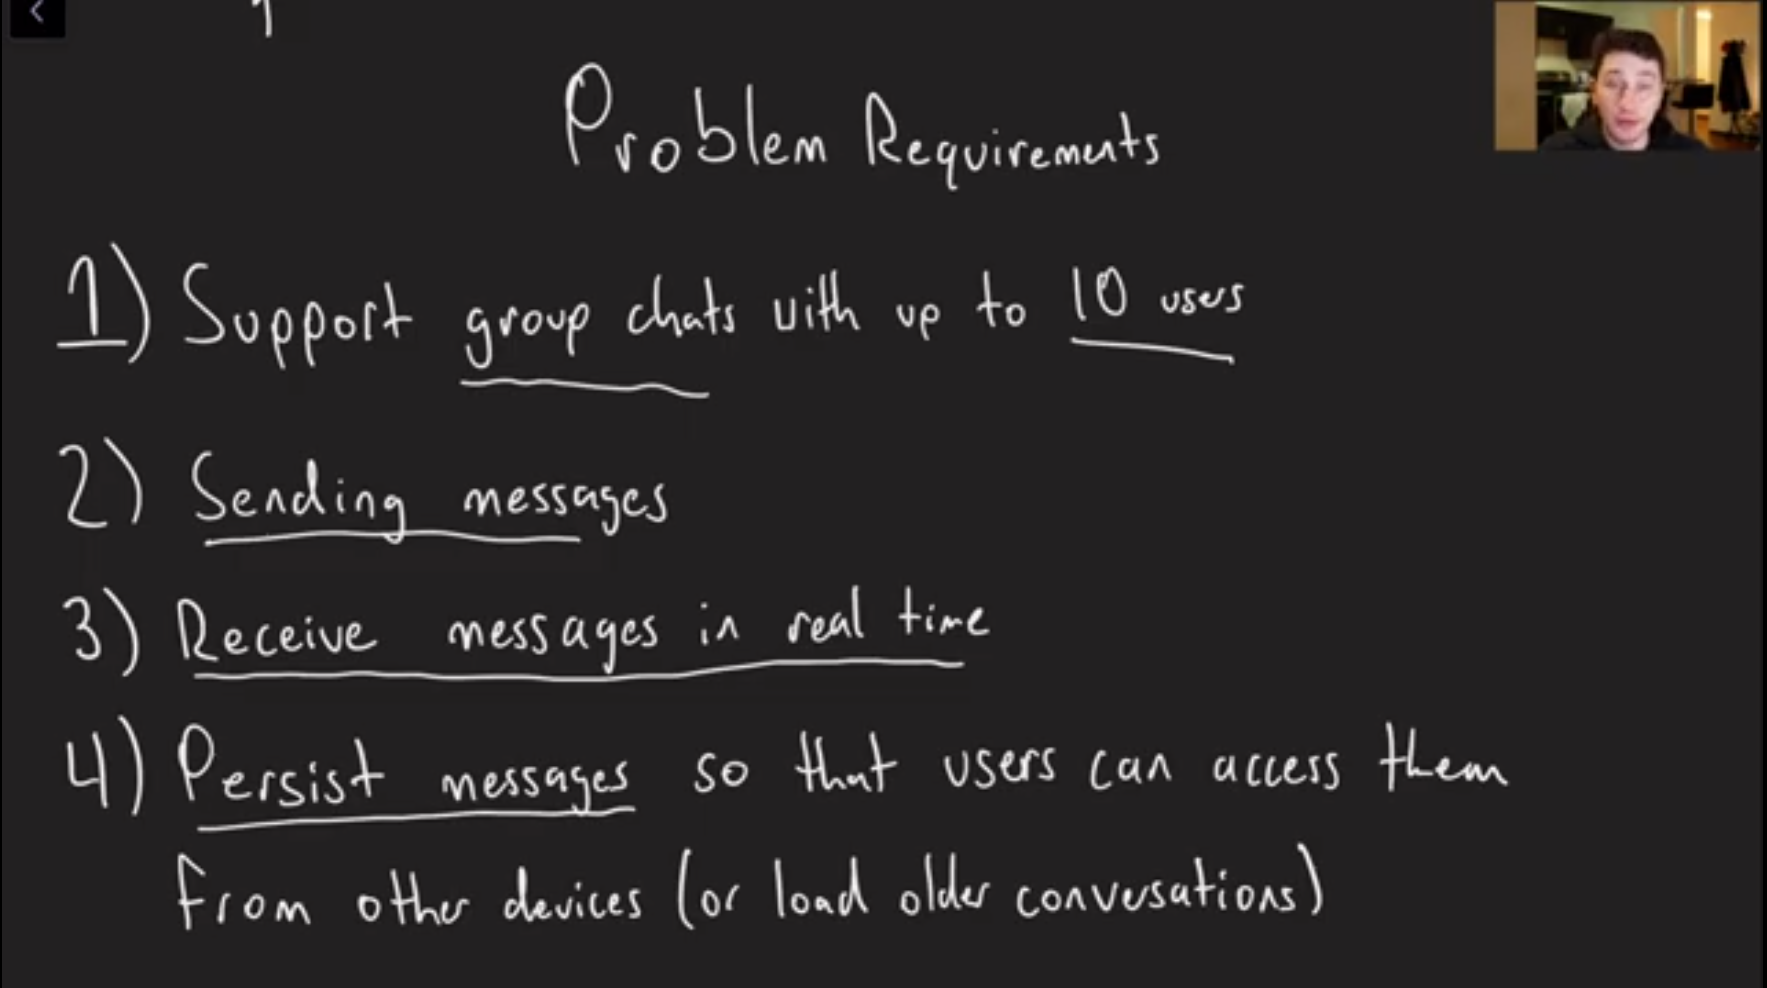 Problem Requirements
1) Support group chats with up to 10 users
2) Sending messages
3) Receive messages in real time
4) Persist messages so that users can access them
from other devices (or load older conversations)